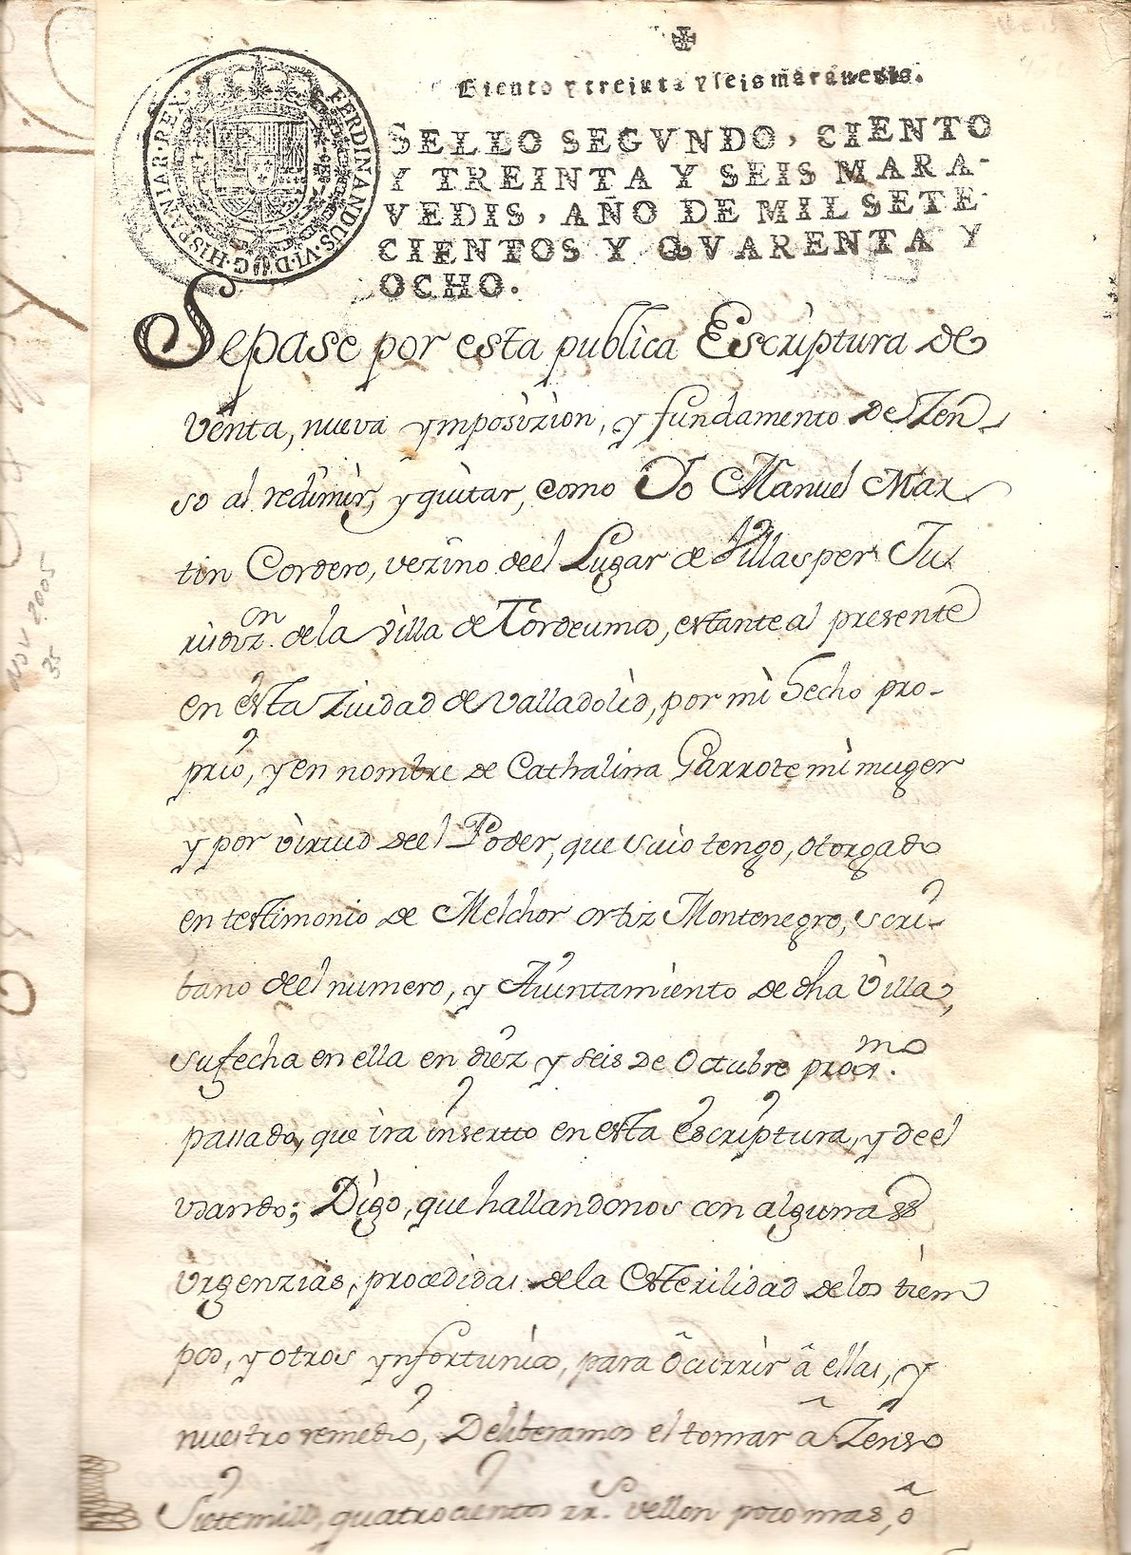 Ciento y treinta y seis marauedis.
FERDINANDUS·VI·D·G·HISPANIAR·REX·
SELLO SEGVNDO, CIENTO
Y TREINTA Y SEIS MARA-
VEDIS, AÑO DE MIL SETE-
CIENTOS Y QVARENTA Y
OCHO.
Sepase por esta publica Escriptura de
Venta, nueva ymposizion, y fundamento de Zen-
so al redimir, y quitar, como Yo Manuel Mar
tin Cordero, vezino deel Lugar de Villasper Ju
risdizon. de la villa de Tordeumos, estante al presente
en esta Ziudad de Valladolid, por mi hecho pro-
prio, y en nombre de Cathalina Garrote mi muger
y por virtud deel Poder, que suio tengo, otorgado
en testimonio de Melchor Ortiz Montenegro, scri-
bano deel numero, y Aiuntamiento de dha Villa,
su fecha en ella en diez y seis de Octubre proxmo.
passado, que ira inserto en esta Escriptura, y de el
usando; Digo, que hallandonos con algunas
urgenzias, procedidas de la Esterilidad de los tiem
pos, y otros ynfortunios, para ôcurrir â ellas, y
nuestro remedio, Deliberamos el tomar â Zenso
Sietemill, quatrocientos rs. vellon poco mas, ô
NOV 2005
35